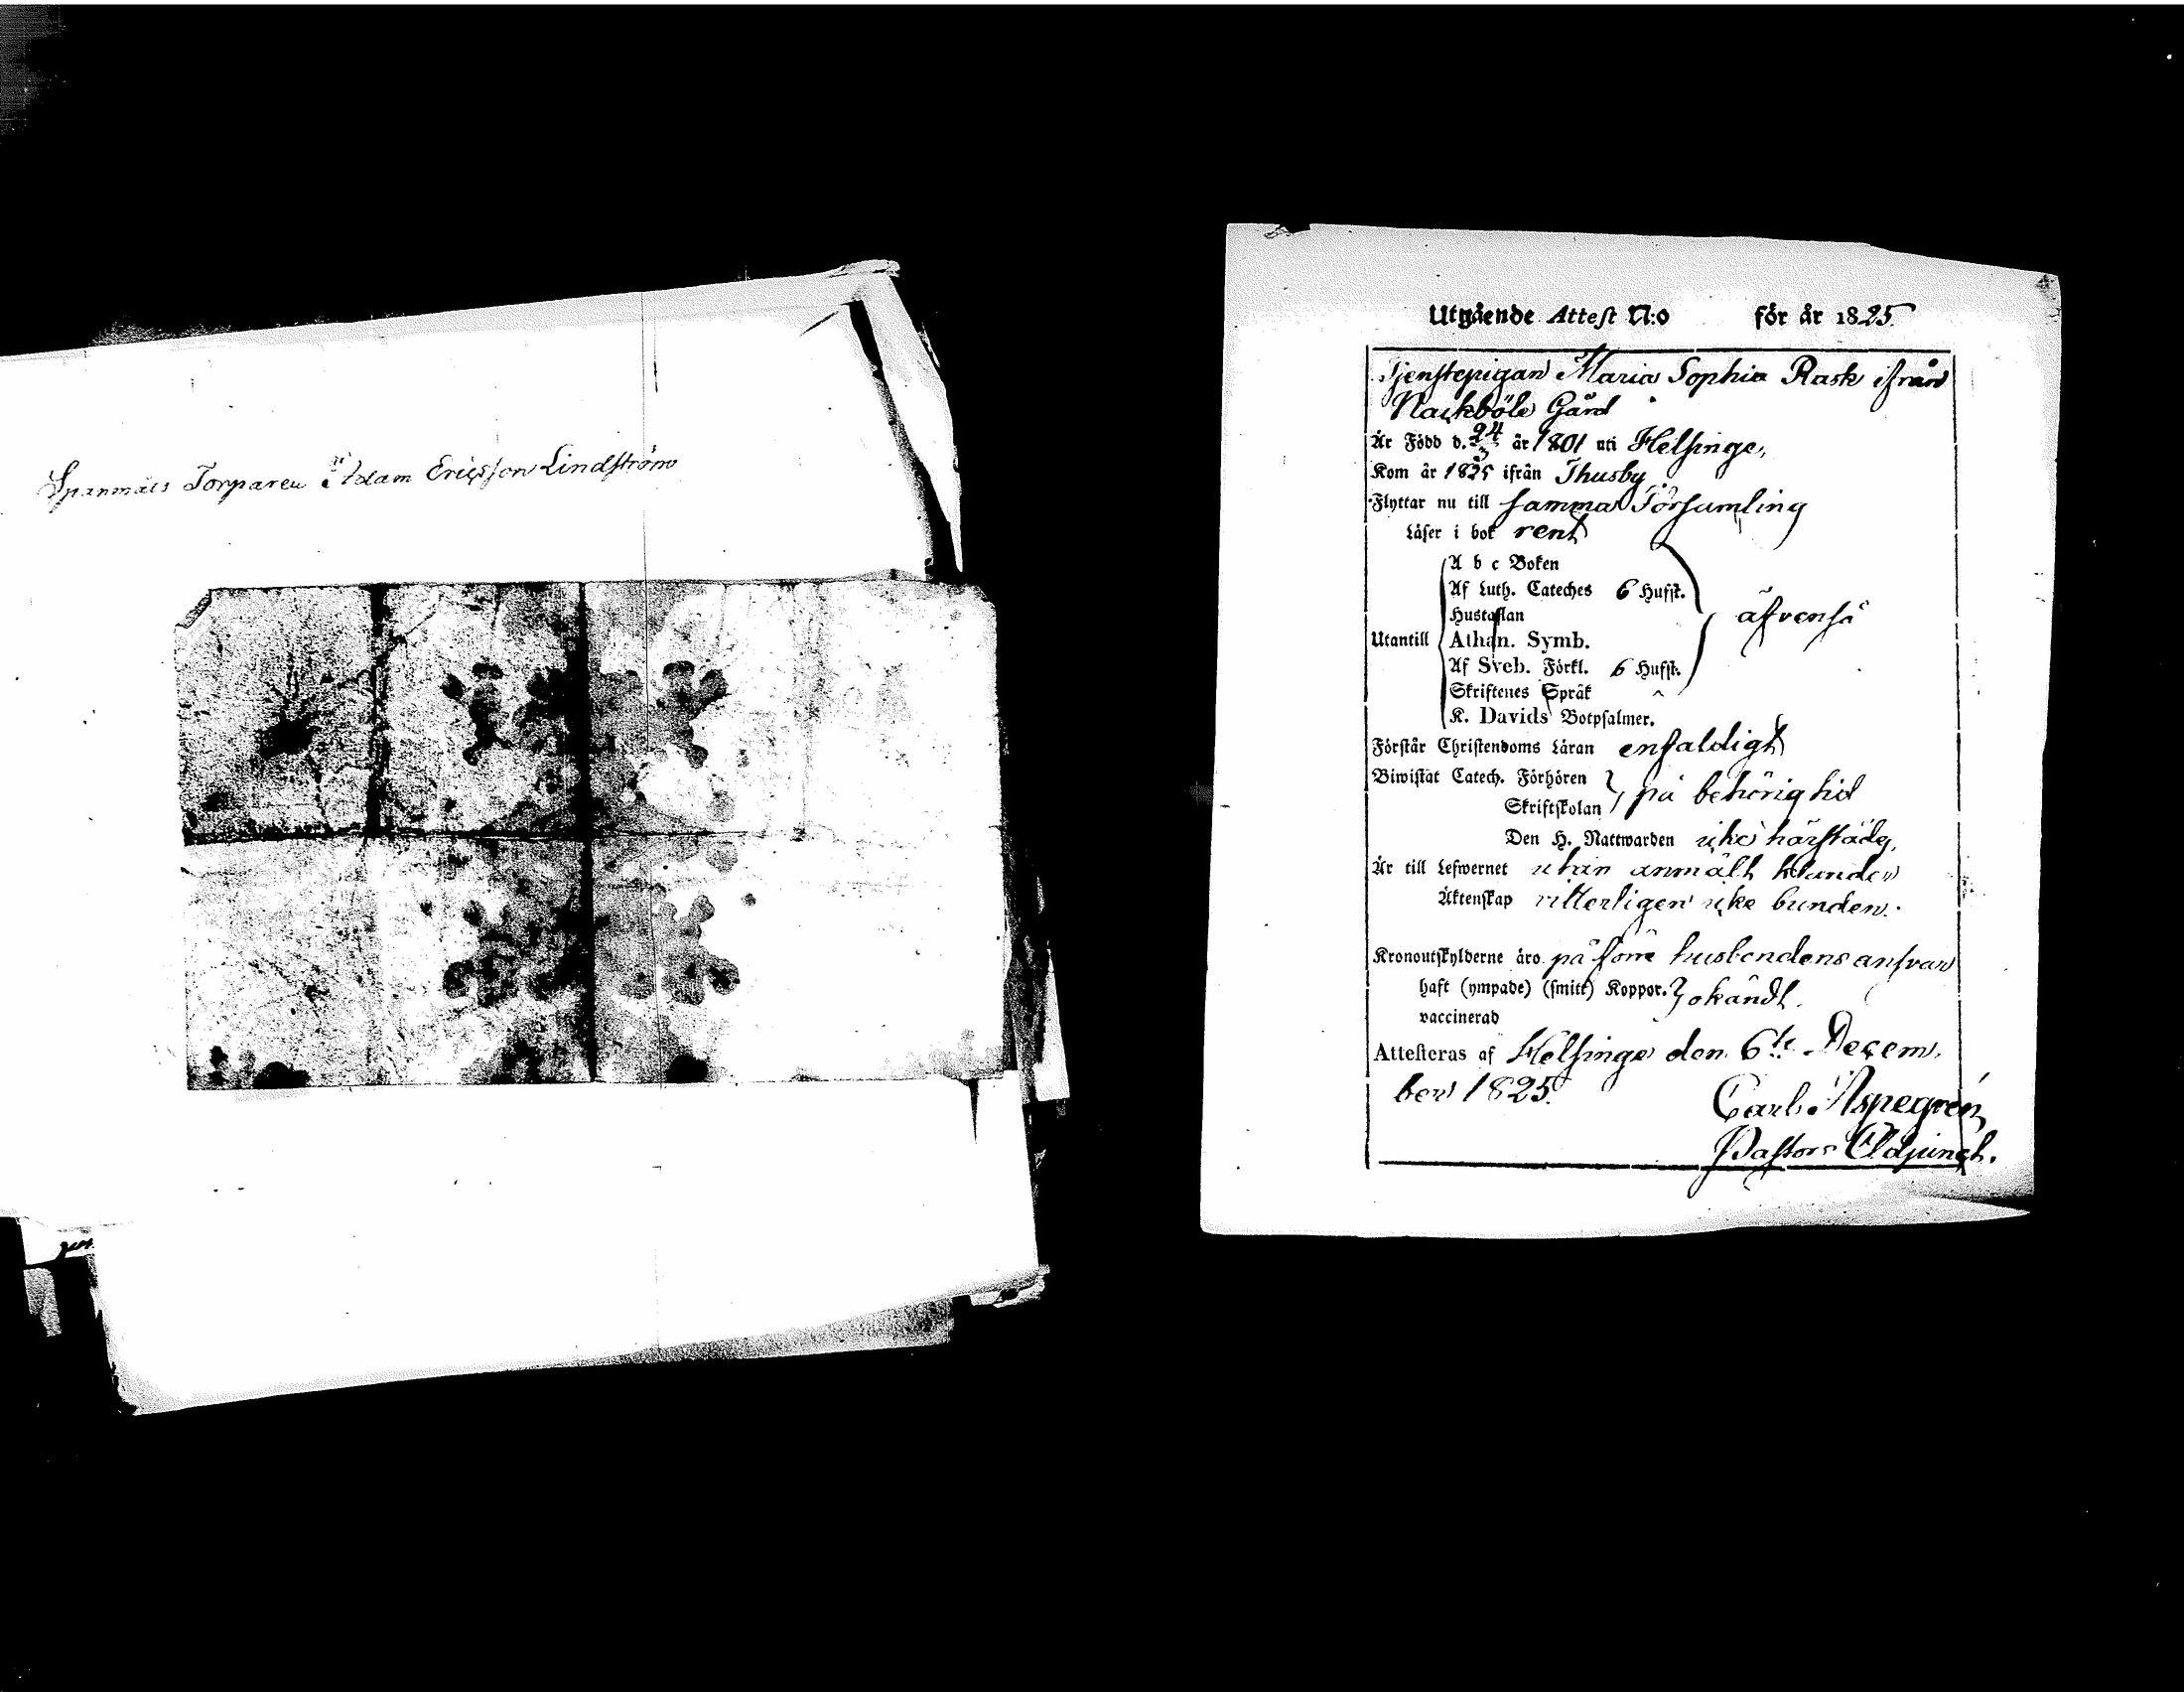 Spanmäls Torparen Adam Ericsson Lindström
Utgående Attest N:o för år 1825
Tjenstepigan Maria Sophia Rask ifrån
Nackböle Gård
Är Född d. 24/3 år 1801 uti Helsinge,
Kom år 1825 ifrån Thusby
Flyttar nu till samma Församling
Läser i bok rent
A b c Boken
Af Luth. Cateches 6 Hufst.
Hustaflan
äfvenså
Utantill Athan. Symb.
Af Sveb. Förkl. 6 Hufst.
Skriftenes Språk
K. Davids Botpsalmer.
Förstår Christendoms Läran enfaldigt
Biwistat Catech. Förhören
Skriftskolan på behörig tid
Den H. Nattwarden icke härstädes,
Är till Lefwernet utan anmält
Äktenskap icke bunden.
Kronoutskylderne äro på förre husbondens ansvar
haft (ympade) (smitt) Koppor. okändt.
vaccinerad
Attesteras af Helsinge den 6te Decem-
ber 1825.
Carl Aspegrén
Pastors Adjunct.